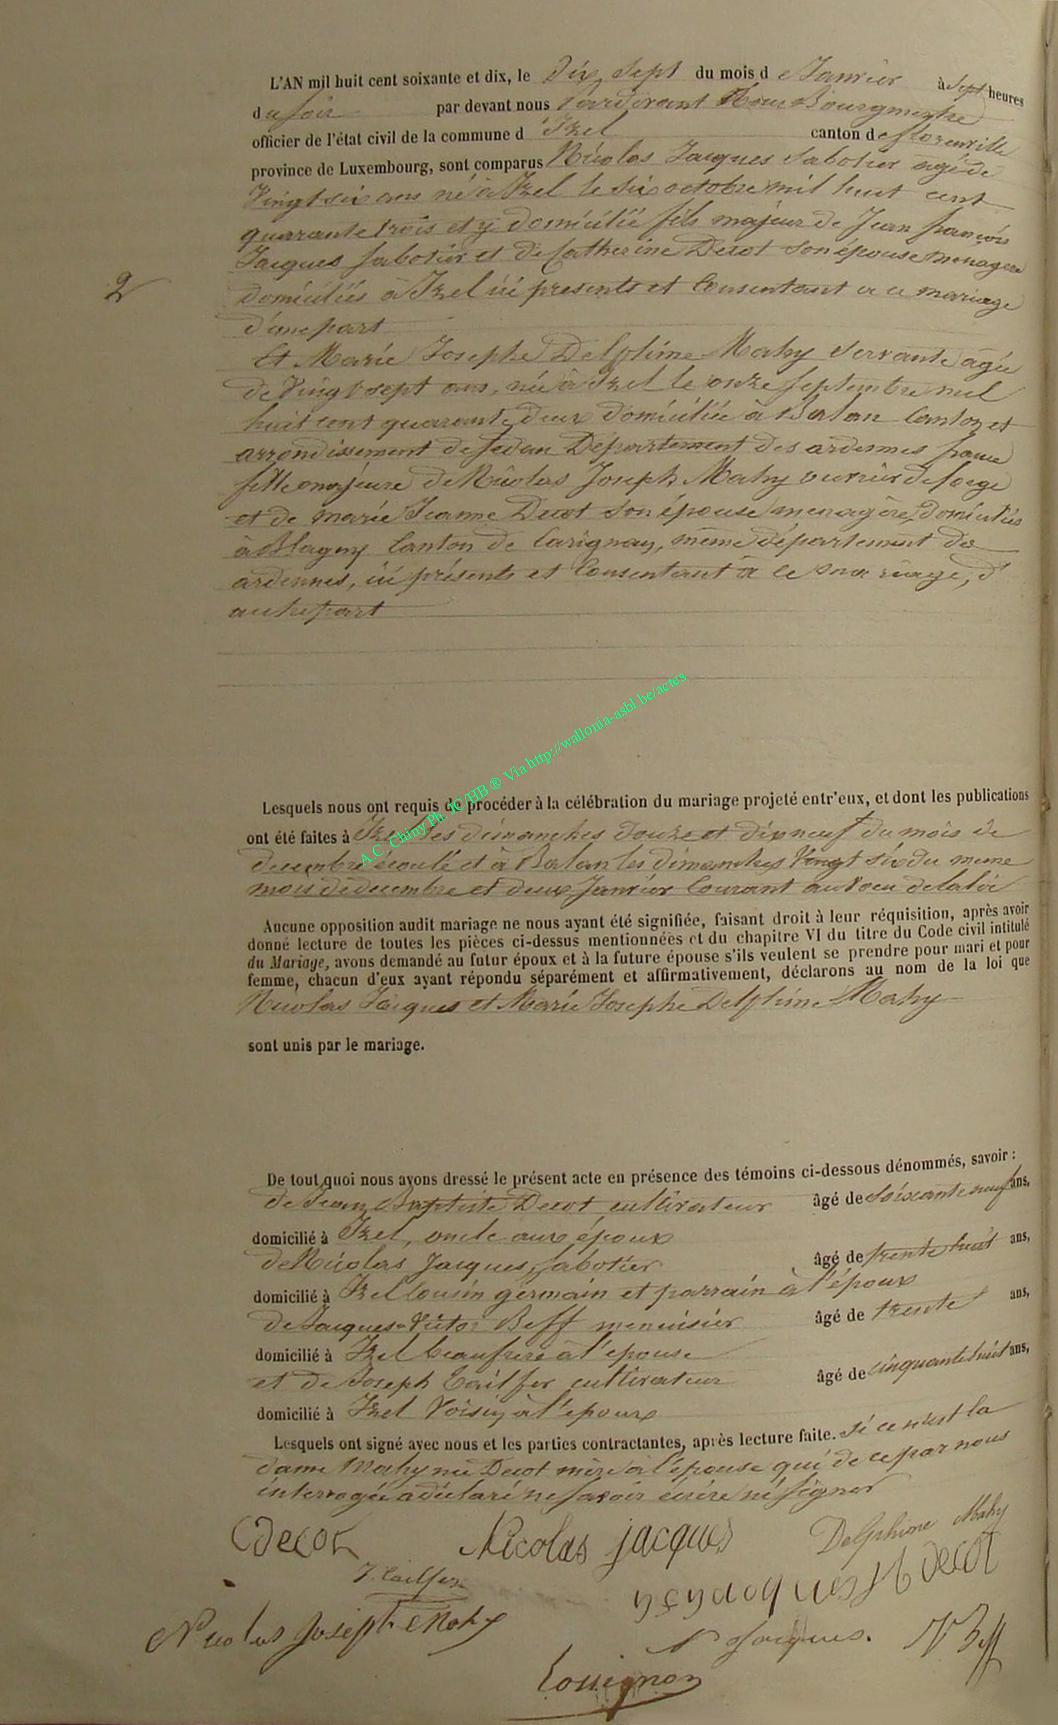 L'AN mil huit cent soixante et dix, le Dix Sept du mois de Janvier à Sept heures
du soir par devant nous Bourgmestre
officier de l'état civil de la commune d'Izel canton de florenville
province de Luxembourg, sont comparus Nicolas Jacques Sabotier agé de
Vingt six ans né à Izel le six octobre mil huit cent
quarante trois et y domicilié fils majeur de Jean françois
Jacques Sabotier et de Catherine Decot son épouse menagere
domiciliés à Izel ici presents et Consentant a ce mariage
d'une part
2
Et Marie Josephe Delphine Mahy servante agée
de Vingt sept ans, née à Izel le onze Septembre mil
huit cent quarante deux domiciliée à Balan Canton et
arrondissement de Sedan Département des ardennes france
fille majeure de Nicolas Joseph Mahy ouvrier de forge
et de Marie Jeanne Decot son épouse menagère, domiciliés
à Blagny Canton de Carignan, même département des
ardennes, ici présents et Consentant à ce mariage, d'
autre part
A.C. Chiny Ph. IC/HB ® Via http://wallonia-asbl.be/actes
Lesquels nous ont requis de procéder à la célébration du mariage projeté entr'eux, et dont les publications
ont été faites à Izel les dimanches douze et dix neuf du mois de
decembre écoulé et à Balan les dimanches Vingt six du meme
mois de decembre et deux Janvier Courant au voeu de la loi
Aucune opposition audit mariage ne nous ayant été signifiée, faisant droit à leur réquisition, après avoir
donné lecture de toutes les pièces ci-dessus mentionnées et du chapitre VI du titre du Code civil intitulé
du Mariage, avons demandé au futur époux et à la future épouse s'ils veulent se prendre pour mari et pour
femme, chacun d'eux ayant répondu séparément et affirmativement, déclarons au nom de la loi que
Nicolas Jacques et Marie Josephe Delphine Mahy
sont unis par le mariage.
De tout quoi nous avons dressé le présent acte en présence des témoins ci-dessous dénommés, savoir :
de Jean Baptiste Decot cultivateur âgé de Soixante neuf ans,
domicilié à Izel, oncle aux époux
de Nicolas Jacques, Sabotier âgé de trente huit ans,
domicilié à Izel Cousin germain et parrain à l'époux
de Jacques Victor Beff menuisier âgé de trente ans,
domicilié à Izel beaufrere à l'épouse
et de Joseph Cailfer cultivateur âgé de cinquante huit ans,
domicilié à Izel Voisin à l'epoux
Lesquels ont signé avec nous et les parties contractantes, après lecture faite. Si ce n'est la
dame Mahy née Decot mère à l'épouse qui de ce par nous
interrogée a déclaré ne savoir écrire ni signer
C Decot Nicolas jacques Delphine Mahy
J. Cailfer Decot
Nicolas Joseph Mahy N Jacques. V Beff